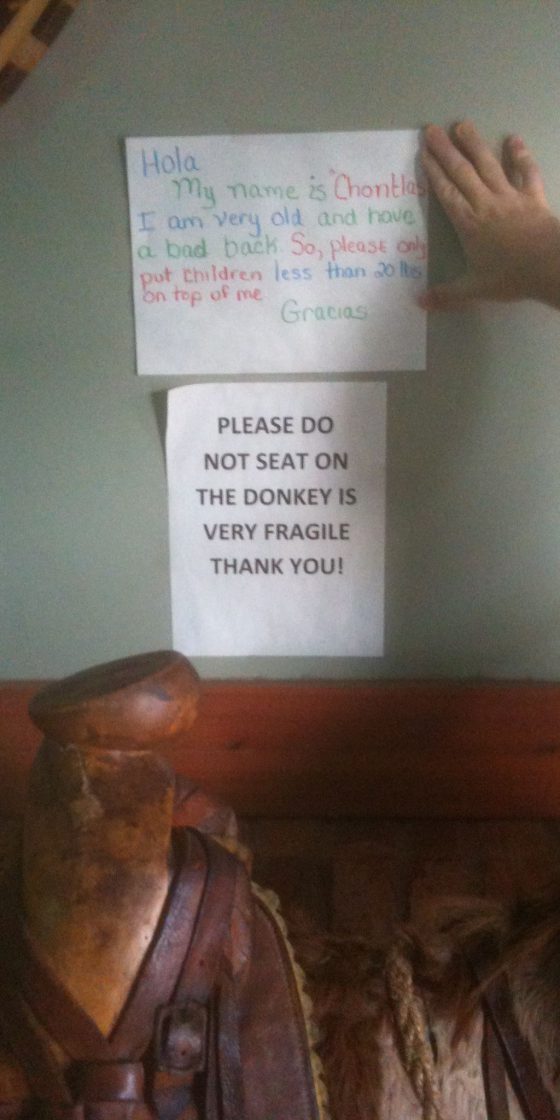 Hola
My name is "Chontlas
I am very old and have
a bad back. So, please only
put children less than 20 lbs
on top of me
Gracias
PLEASE DO
NOT SEAT ON
THE DONKEY IS
VERY FRAGILE
THANK YOU!